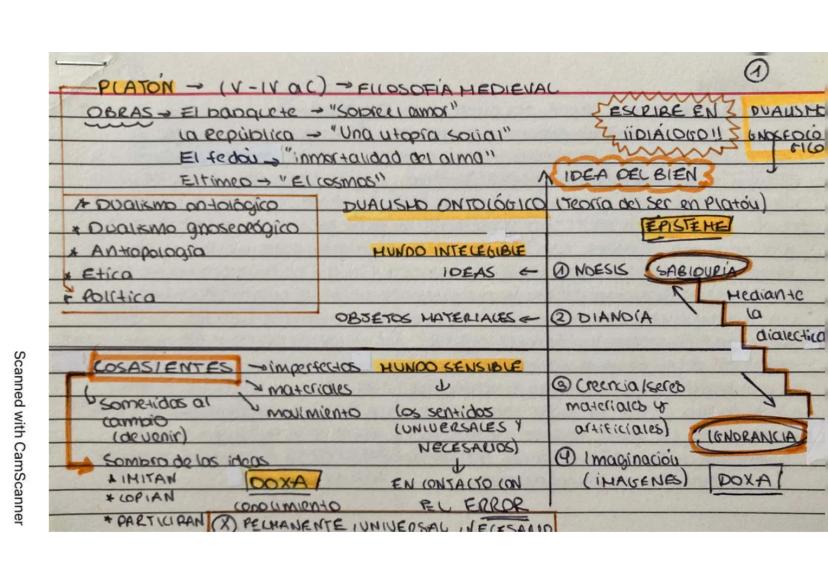 ①
PLATÓN → (V-IV aC) → FILOSOFÍA MEDIEVAL
OBRAS → El banquete → "Sobre el amor"
La República → "Una utopía social"
El fedón → "inmortalidad del alma"
El timeo → "El cosmos"
ESCRIBE EN
¡¡DIÁLOGO!!
DUALISMO
GNOSEOLÓ
GICO
* Dualismo ontológico
* Dualismo gnoseológico
* Antropología
* Etica
* Política
IDEA DEL BIEN
DUALISMO ONTOLÓGICO (Teoría del Ser en Platón)
EPISTEME
MUNDO INTELEGIBLE
IDEAS ← ① NOESIS
SABIDURÍA
Mediante
la
dialectica
OBJETOS MATERIALES ← ② DIANOIA
COSAS/ENTES → imperfectos
→ materiales
→ movimiento
Sometidos al
cambio
(devenir)
Sombra de las ideas
* IMITAN
* COPIAN
* PARTICIPAN
MUNDO SENSIBLE
Los sentidos
(UNIVERSALES Y
NECESARIOS)
EN CONTACTO CON
EL ERROR
③ Creencia/seres
materiales y
artificiales)
④ Imaginación
(IMAGENES)
IGNORANCIA
DOXA
DOXA
conocimiento
(X) PERMANENTE, UNIVERSAL, NECESARIO
Scanned with CamScanner